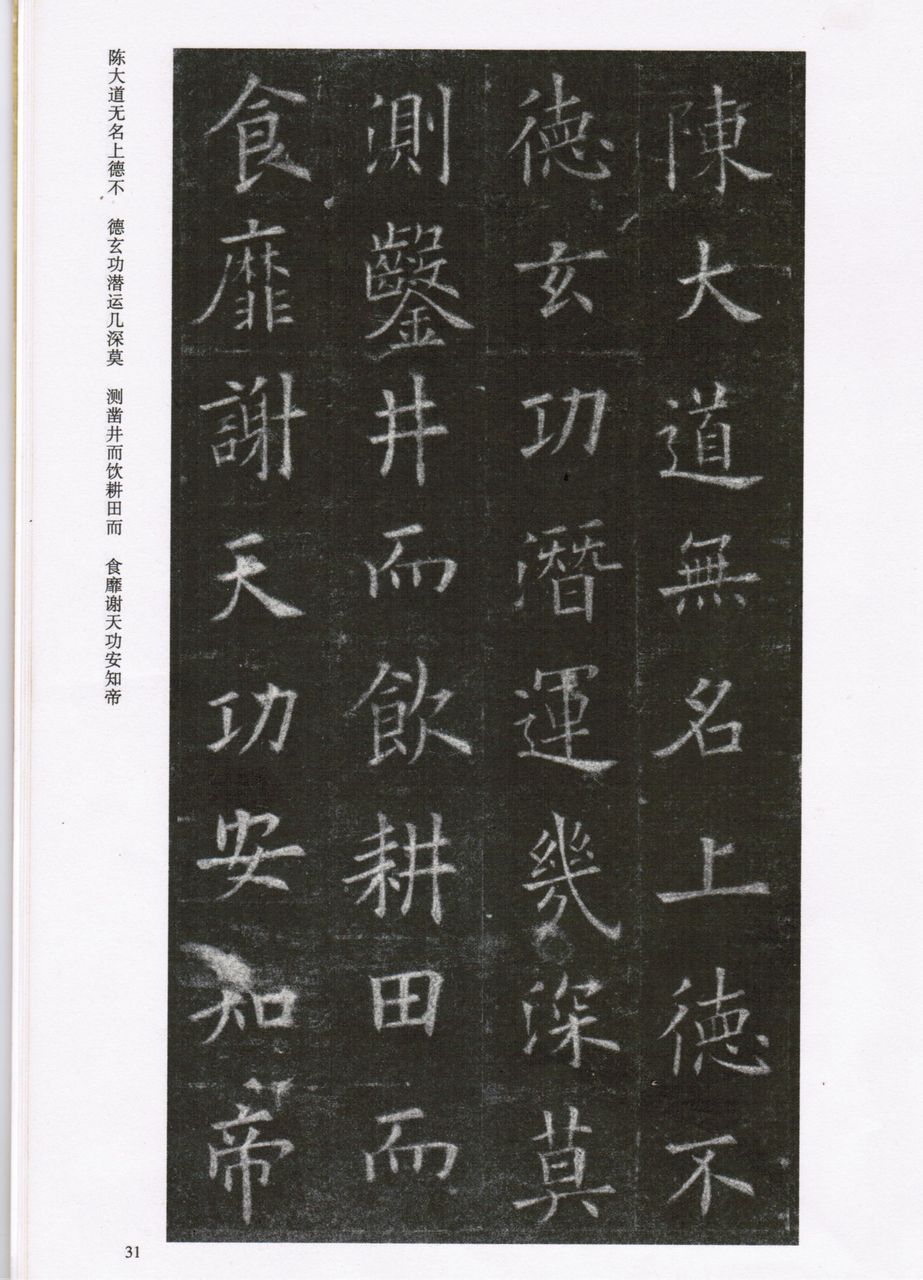 陳大道無名上德不
德玄功潛運幾深莫
測鑿井而飲耕田而
食靡謝天功安知帝
陈大道无名上德不 德玄功潜运几深莫 测凿井而饮耕田而 食靡谢天功安知帝
31